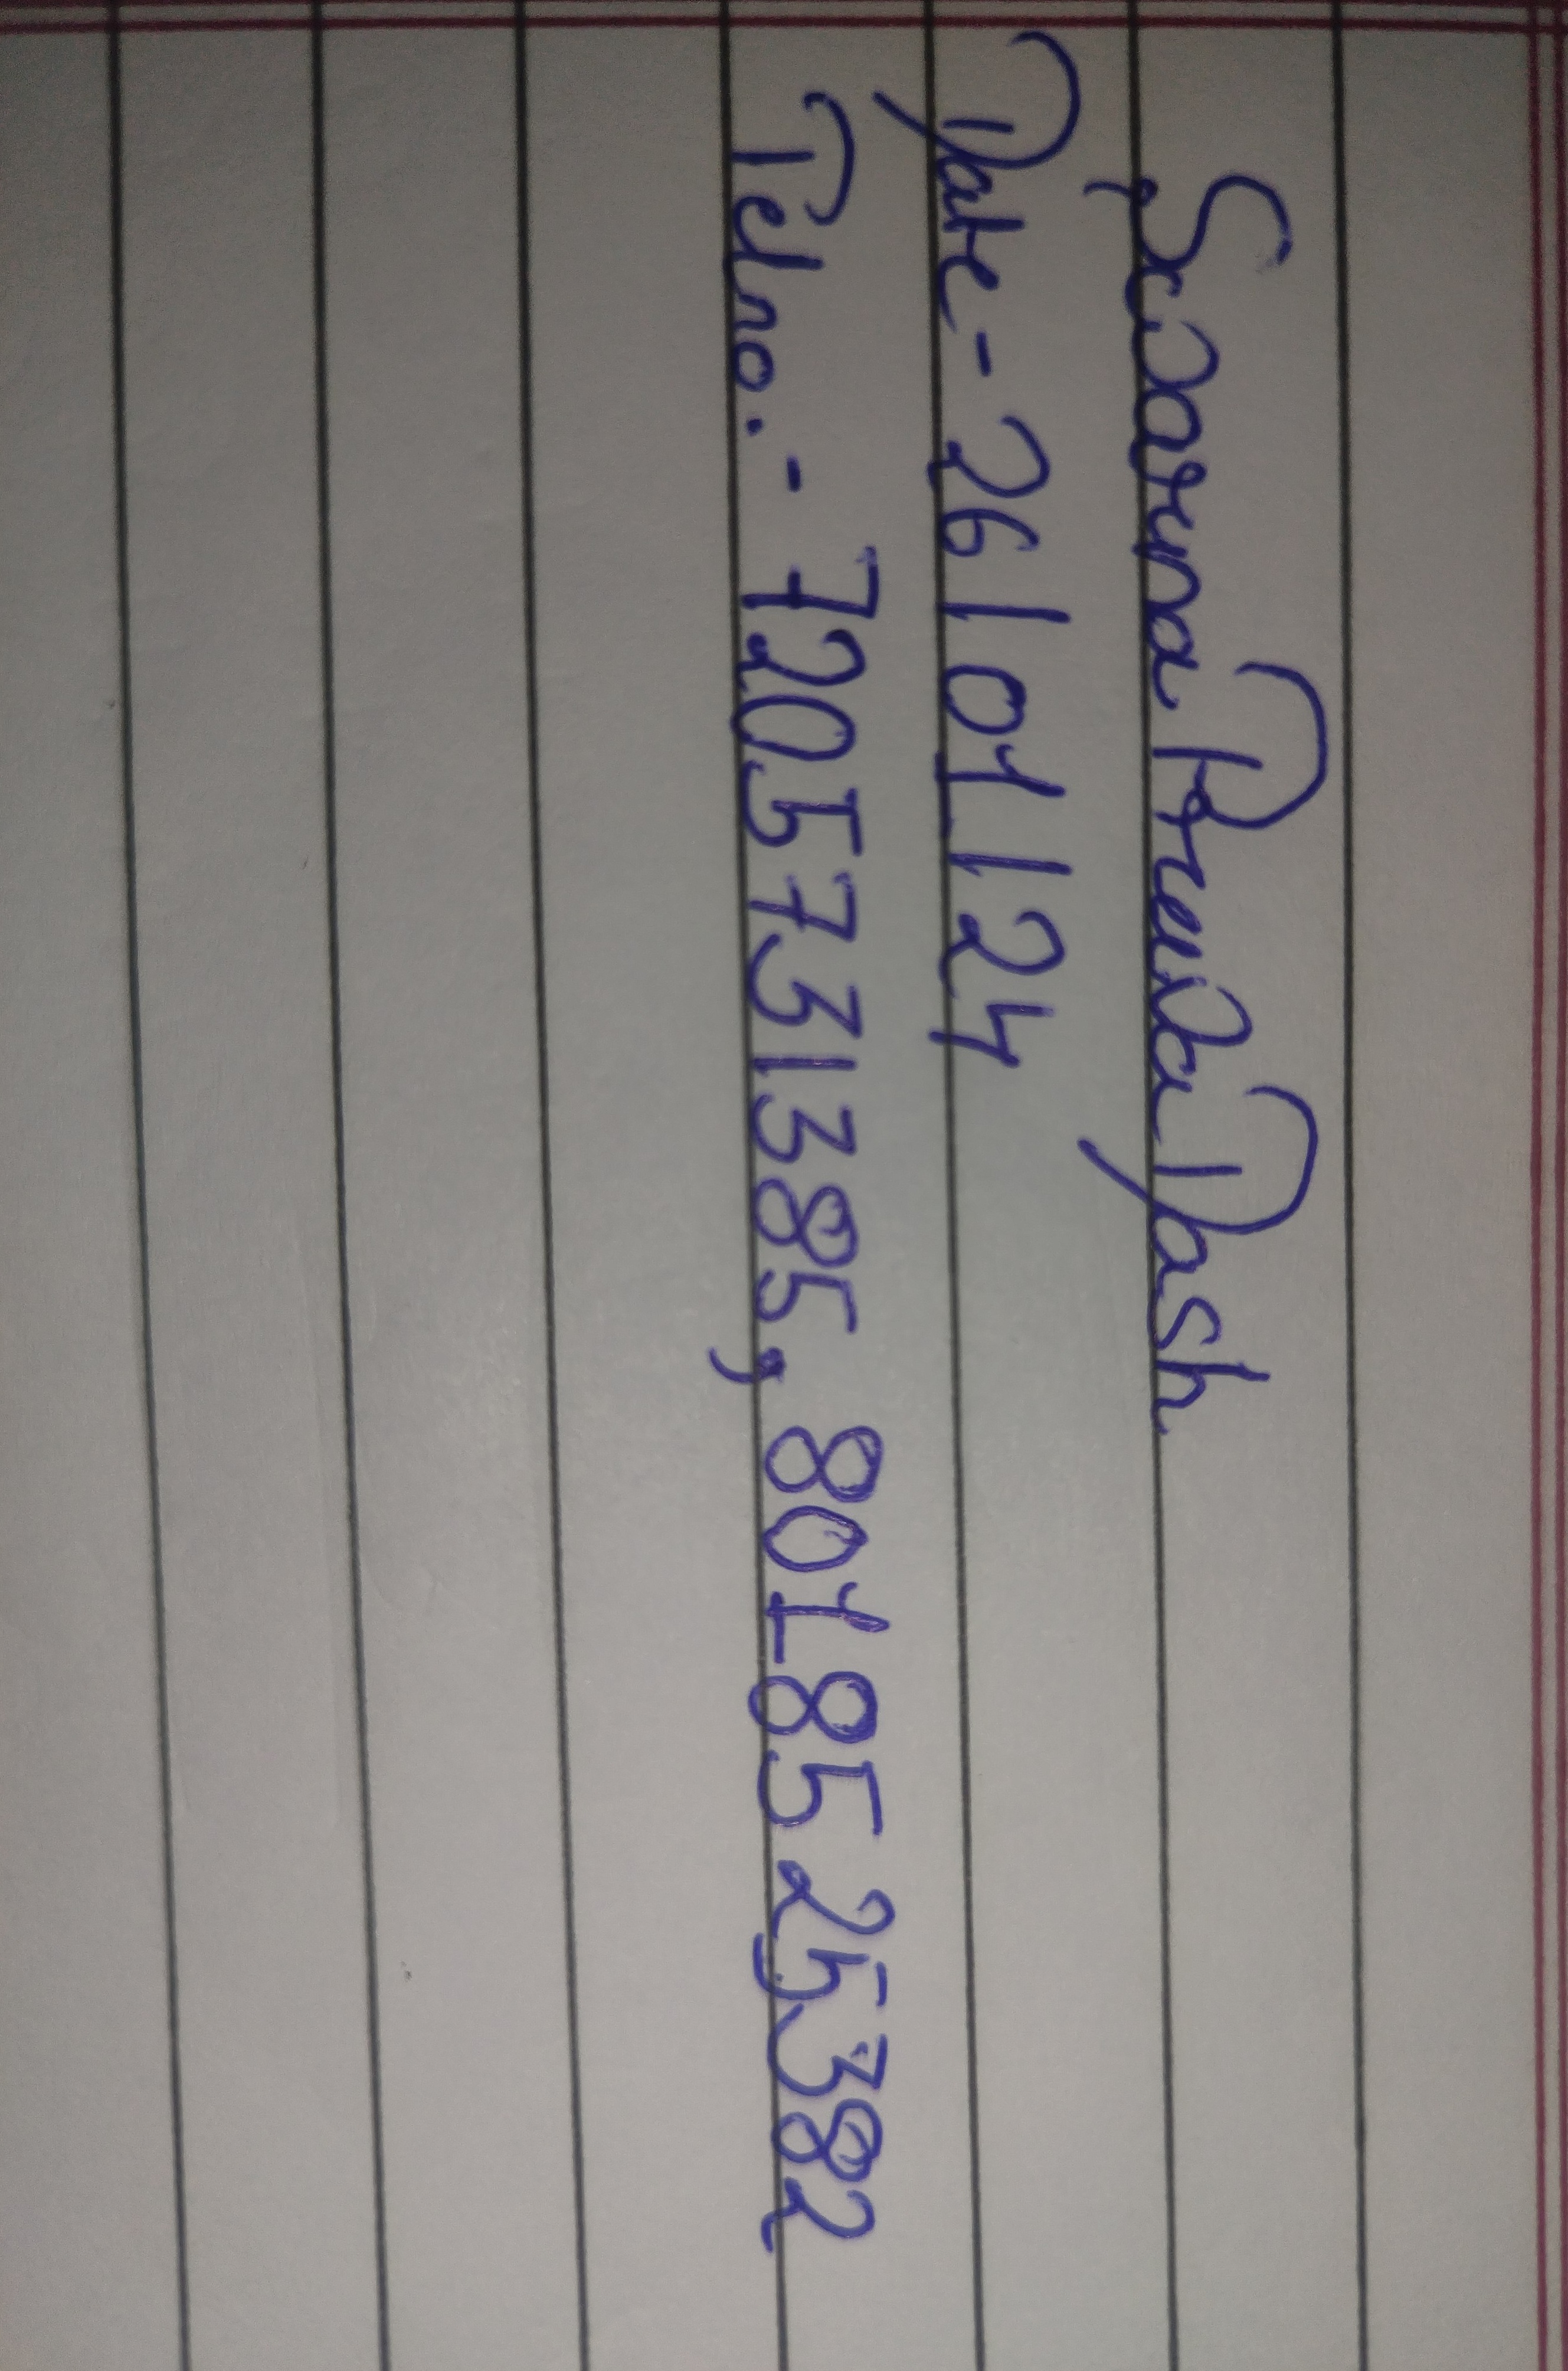 Swarna Prewa Dash
Date - 26/01/24
Tel no. - 7205731385, 8018525382